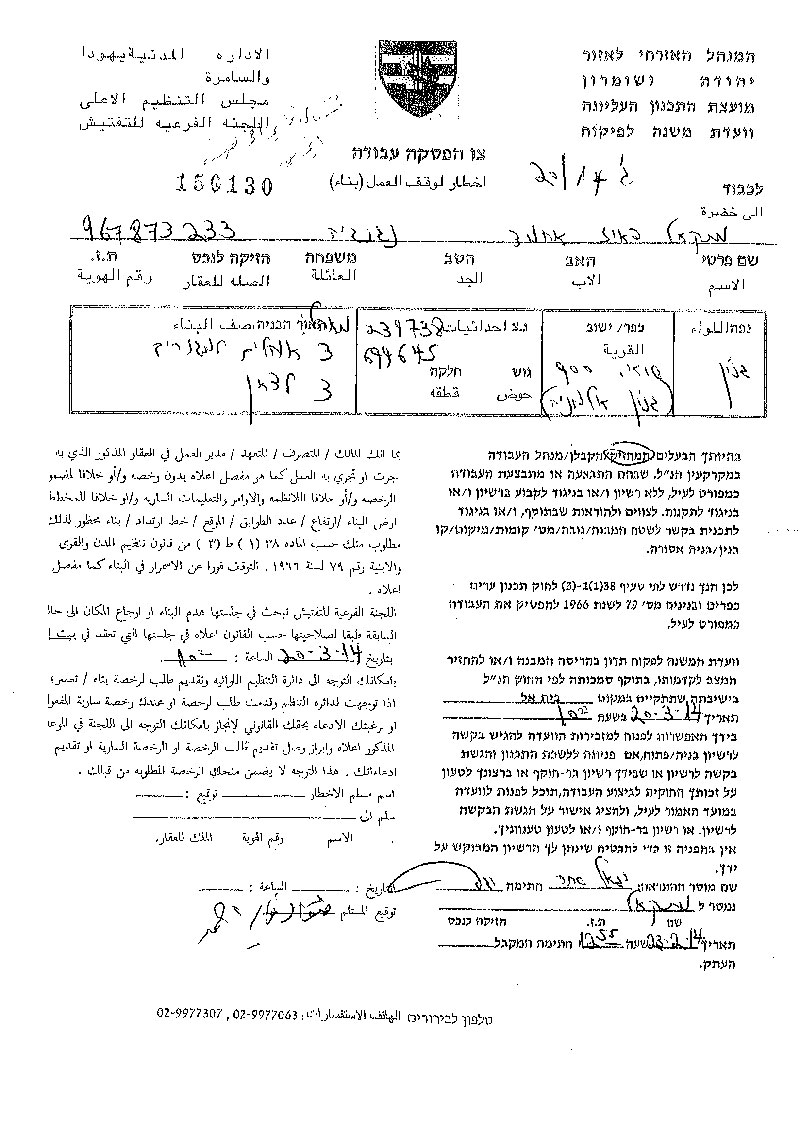 המנהל האזרחי לאזור
יהודה ושומרון
מועצת התכנון העליונה
וועדת משנה לפיקוח
الاداره المدنية يهودا
والسامرة
مجلس التنظيم الاعلى
اللجنه الفرعيه للتفتيش
צו הפסקה עבודה
اخطار لوقف العمل (بناء)
150130
לכבוד
الى حضرة
967873233
שם פרטי האב הסב משפחה הזיקה לנכס ת.ז.
الاسم الاب الجد العائلة الصله للعقار رقم الهوية
נפה/اللواء
כפר/ ישוב
القرية
נ.צ احداثيات 239738
694645
גוש חלקה
حوض قطعه
תאור הבניה وصف البناء
3
3
בהיותך הבעלים/המחזיק/הקבלן/מנהל העבודה
במקרקעין הנ"ל, שבהם התבצעה או מתבצעת העבודה
כמפורט לעיל, ללא רשיון ו/או בניגוד לקבוע ברשיון ו/או
בניגוד לתקנות, לצווים ולהוראות שבתוקף, ו/או בניגוד
לתכנית בקשר לשטח המגרש/גובה/מס' קומות/מיקום/קו
בנין/בניה אסורה.
לכן הנך נדרש לפי סעיף 38(1)-(3) לחוק תכנון ערים
כפרים ובנינים מס' 79 לשנת 1966 להפסיק את העבודה
כמפורט לעיל.
וועדת המשנה לפקוח תדון בהריסת המבנה ו/או להחזיר
המצב לקדמותו, בתוקף סמכותה לפי החוק הנ"ל
בישיבתה שתתקיים במקום בית אל
תאריך 20-3-14 בשעה 10 00
בידך האפשרות לפנות למזכירות הוועדה להגיש בקשה
לרשיון בניה/פתוח, אם פנית ללשכת התכנון והגשת
בקשה לרשיון או שבידך רשיון בר-תוקף או ברצונך לטעון
על זכותך החוקית לביצוע העבודה, תוכל לפנות לוועדה
במועד האמור לעיל, ולהציג אישור על הגשת הבקשה
לרשיון, או רשיון בר-תוקף ו/או לטעון טענותיך.
אין בהפניה זו כדי להבטיח שינתן לך הרשיון המבוקש על
ידך.
שם מוסר ההתראה: חתימה
נמסר ל
שם ת.ז. הזיקה לנכס
תאריך 23-2-14 שעה 12 55 חתימת המקבל
העתק.
بما انك المالك / المتصرف / المتعهد / مدير العمل في العقار المذكور الذي به
جرت او تجري به العمل كما هو مفصل اعلاه بدون رخصه و/أو خلافا لمضمون
الرخصه و/أو خلافا للانظمه والاوامر والتعليمات الساريه و/او خلافا للمخطط
ارض البناء /ارتفاع / عدد الطوابق / الموقع / خط ارتداد / بناء محظور لذلك
مطلوب منك حسب الماده ٣٨ (١) ط (٣) من قانون تنظيم المدن والقرى
والابنية رقم ٧٩ لسنة ١٩٦٦ ، التوقف فورا عن الاستمرار في البناء كما مفصل
اعلاه .
اللجنة الفرعية للتفتيش تبحث في جلستها هدم البناء او ارجاع المكان الى حاله
السابقة طبقا لصلاحيتها حسب القانون اعلاه في جلستها التي تعقد في بيت ا
بتاريخ 20-3-14 الساعة : 10 00
بامكانك التوجه الى دائرة التنظيم اللوائيه وتقديم طلب لرخصة بناء / تعمير؛
اذا توجهت لدائرة التنظيم وقدمت طلب لرخصة او عندك رخصة سارية المفعول
او رغبتك الادعاء بحقك القانوني لإنجاز بامكانك التوجه الى اللجنة في الموعد
المذكور اعلاه وابراز وصل تقديم طلب الرخصة او الرخصة السارية او تقديم
ادعاءاتك . هذا التوجه لا يضمن منحك الرخصة المطلوبه من قبلك .
اسم مسلم الاخطار توقيع :
سلم الى
الاسم رقم الهوية الملك للعقار.
التاريخ : الساعة :
توقيع المستلم
טלפון לבירורים الهاتف الاستفسارات: 02-9977063 , 02-9977307